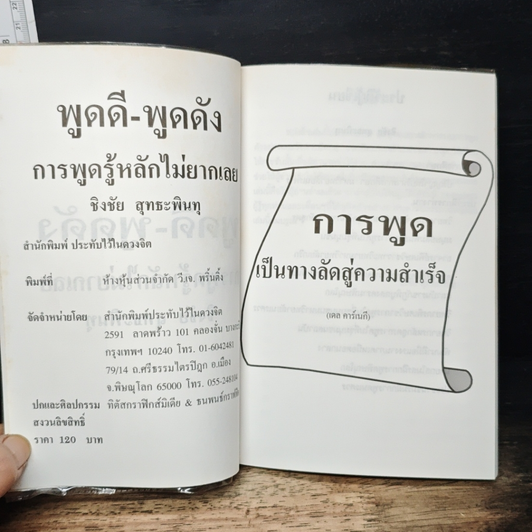 พูดดี-พูดดัง
การพูดรู้หลักไม่ยากเลย
ชิงชัย สุทธะพินทุ
สำนักพิมพ์ ประทับไว้ในดวงจิต
พิมพ์ที่ ห้างหุ้นส่วนจำกัด วี.เจ. พริ้นติ้ง
จัดจำหน่ายโดย สำนักพิมพ์ประทับไว้ในดวงจิต
2591 ลาดพร้าว 101 คลองจั่น
กรุงเทพฯ 10240 โทร. 01-6042481
79/14 ถ.ศรีธรรมไตรปิฎก อ.เมือง
จ.พิษณุโลก 65000 โทร. 055-248
ปกและศิลปกรรม ทิตัสกราฟิกส์มีเดีย & ธนพนธ์
สงวนลิขสิทธิ์
ราคา 120 บาท
การพูด
เป็นทางลัดสู่ความสำเร็จ
(เดล คาร์เนกี)